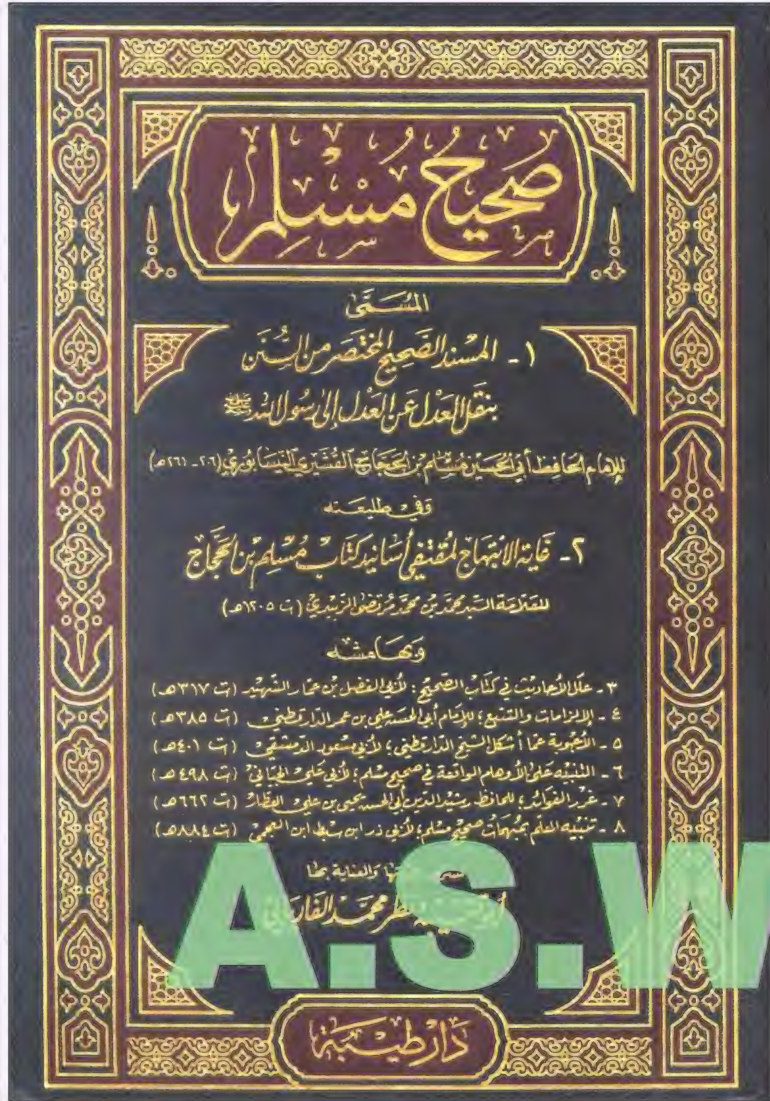 صحيح مسلم
المسمى
١ - المسند الصحيح المختصر من السنن
بنقل العدل عن العدل إلى رسول الله ﷺ
للإمام الحافظ أبي الحسين مسلم بن الحجاج القشيري النيسابوري (٢٠٦ - ٢٦١هـ)
وفي طليعته
٢ - غاية الابتهاج لمقتفي أسانيد كتاب مسلم بن الحجاج
للعلامة السيد محمد بن محمد مرتضى الزبيدي (ت ١٢٠٥هـ)
وبهامشه
٣ - علل الأحاديث في كتاب الصحيح؛ لأبي الفضل بن عمار الشهيد (ت ٣١٧هـ)
٤ - الإلزامات والتتبع؛ للإمام أبي الحسن علي بن عمر الدارقطني (ت ٣٨٥هـ)
٥ - الأجوبة عما أشكل الشيخ الدارقطني؛ لأبي مسعود الدمشقي (ت ٤٠١هـ)
٦ - التنبيه على الأوهام الواقعة في صحيح مسلم؛ لأبي علي الجياني (ت ٤٩٨هـ)
٧ - غرر الفوائد؛ للحافظ رشيد الدين أبي الحسين يحيى بن علي العطار (ت ٦٦٢هـ)
٨ - تنبيه المعلم بمبهمات صحيح مسلم؛ لأبي ذر ابن سبط ابن العجمي (ت ٨٨٤هـ)
والعناية بها
نظر محمد الفاريابي
A.S.W
دار طيبة